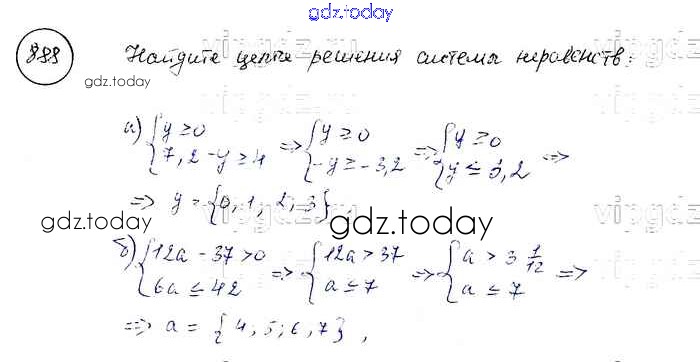 gdz.today
888 Найдите целые решения системы неравенств:
gdz.today
а) {y ≥ 0 => {y ≥ 0 => {y ≥ 0 =>
{7,2 - y ≥ 4 {-y ≥ -3,2 {y ≤ 3,2
=> y = {0, 1, 2, 3}
gdz.today
gdz.today
б) {12a - 37 > 0 => {12a > 37 => {a > 3 1/12 =>
{6a ≤ 42 {a ≤ 7 {a ≤ 7
=> a = {4, 5; 6, 7},